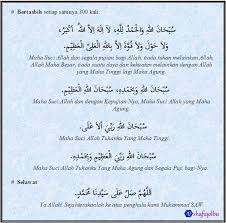 # Bertasbih setiap satunya 300 kali.
سُبْحَانَ اللَّهِ، وَالْحَمْدُ لِلَّهِ، وَلَا إِلَهَ إِلَّا اللَّهُ أَكْبَرُ،
وَلَا حَوْلَ وَلَا قُوَّةَ إِلَّا بِاللَّهِ الْعَلِيِّ الْعَظِيْمِ.
Maha Suci Allah dan segala pujian bagi Allah, tiada tuhan melainkan Allah,
Allah Maha Besar, tiada daya dan kekuatan melainkan dengan Allah
yang Maha Tinggi lagi Maha Agung.
سُبْحَانَ اللَّهِ وَبِحَمْدِهِ، سُبْحَانَ اللَّهِ الْعَظِيْمِ.
Maha Suci Allah dan dengan Kepujian Nya, Maha Suci Allah yang Maha
Agung.
سُبْحَانَ اللَّهِ رَبِّيَ الأَعْلَى.
Maha Suci Allah Tuhanku Yang Maha Tinggi.
سُبْحَانَ اللَّهِ رَبِّيَ الْعَظِيْمِ وَبِحَمْدِهِ.
Maha Suci Allah Tuhanku Yang Maha Agung dan Segala Puji bagi-Nya.
# Selawat
اللَّهُمَّ صَلِّ عَلَى سَيِّدِنَا مُحَمَّدٍ.
Ya Allah! Sejahterakanlah ke atas penghulu kami Muhammad SAW
shafiqolbu